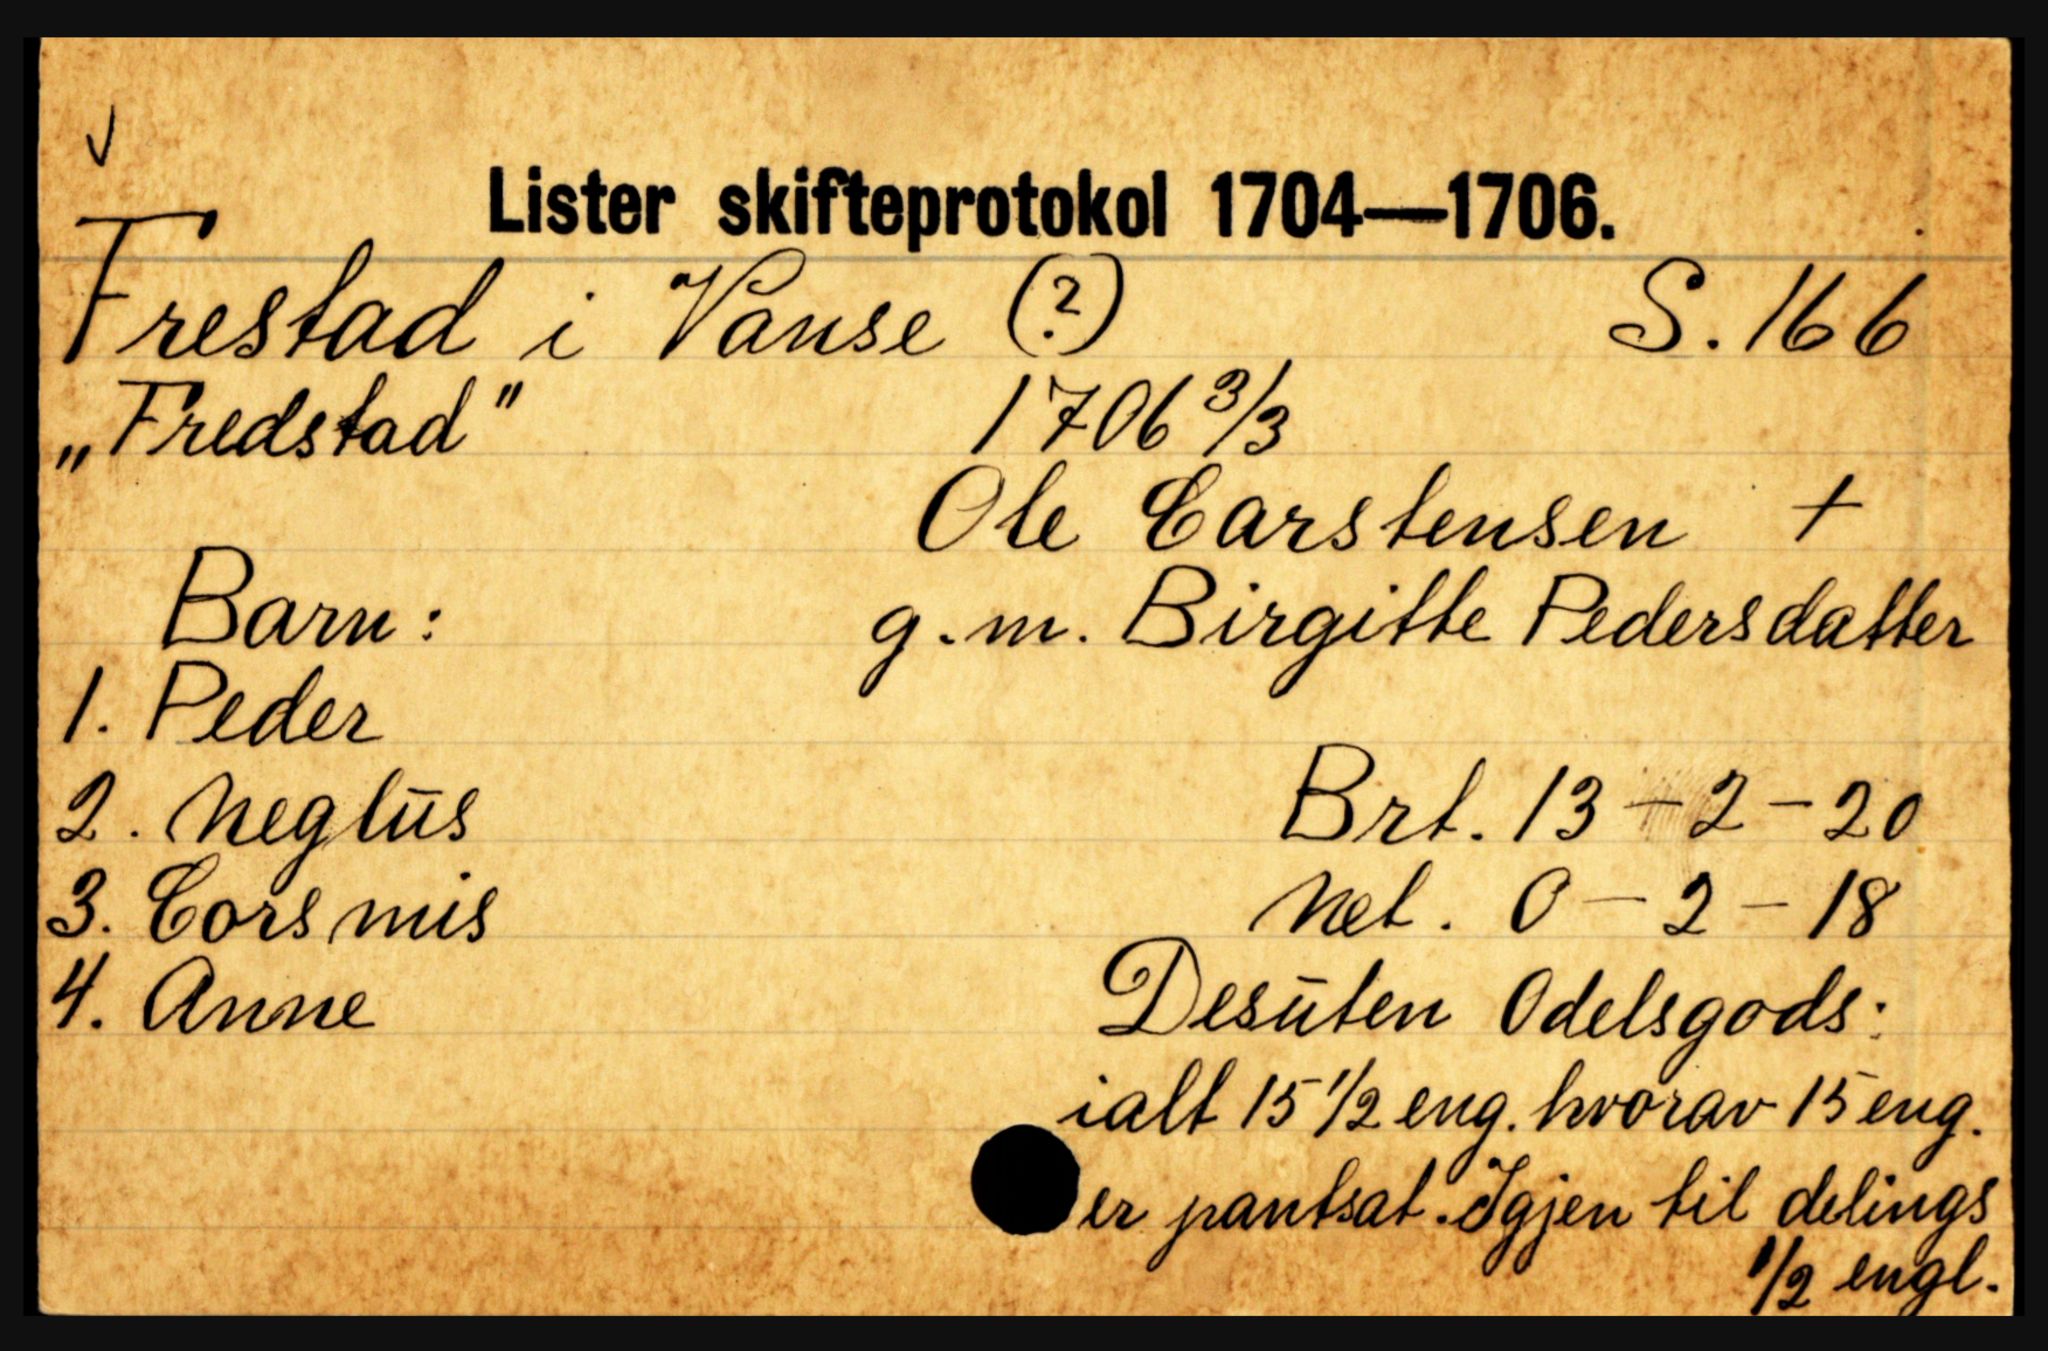 Lister skifteprotokol 1704—1706.
Frestad i Vanse (?) S. 166
„Fredstad" 1706 3/3
Ole Carstensen +
Barn: g.m. Birgitte Pedersdatter
1. Peder
2. Neglus Brt. 13 - 2 - 20
3. Corsmis Net. 0 - 2 - 18
4. Anne Desuten Odelsgods:
ialt 15 1/2 eng. hvorav 15 eng.
er pantsat. Igjen til delings
1/2 engl.